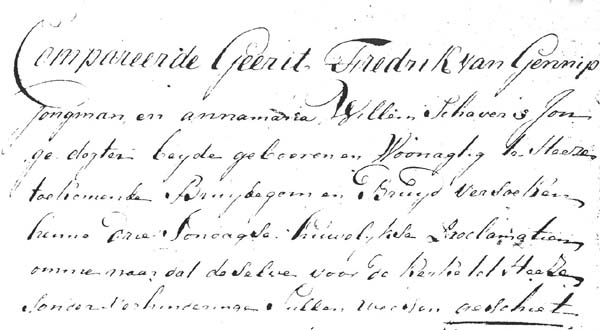 Compareerde Geerit Fredrik van Gennip
Jongman en annamaria Willem Schavers Jon
ge dogter beyde gebooren en Woonagtig te Heeze
toekomende Bruydegom en Bruyd versoeken
hunne drie Sondagse huwelykse Proclamatien
omme naar dat deselve voor de kerke tot Heeze
sonder verhinderinge Sullen weesen geschiet